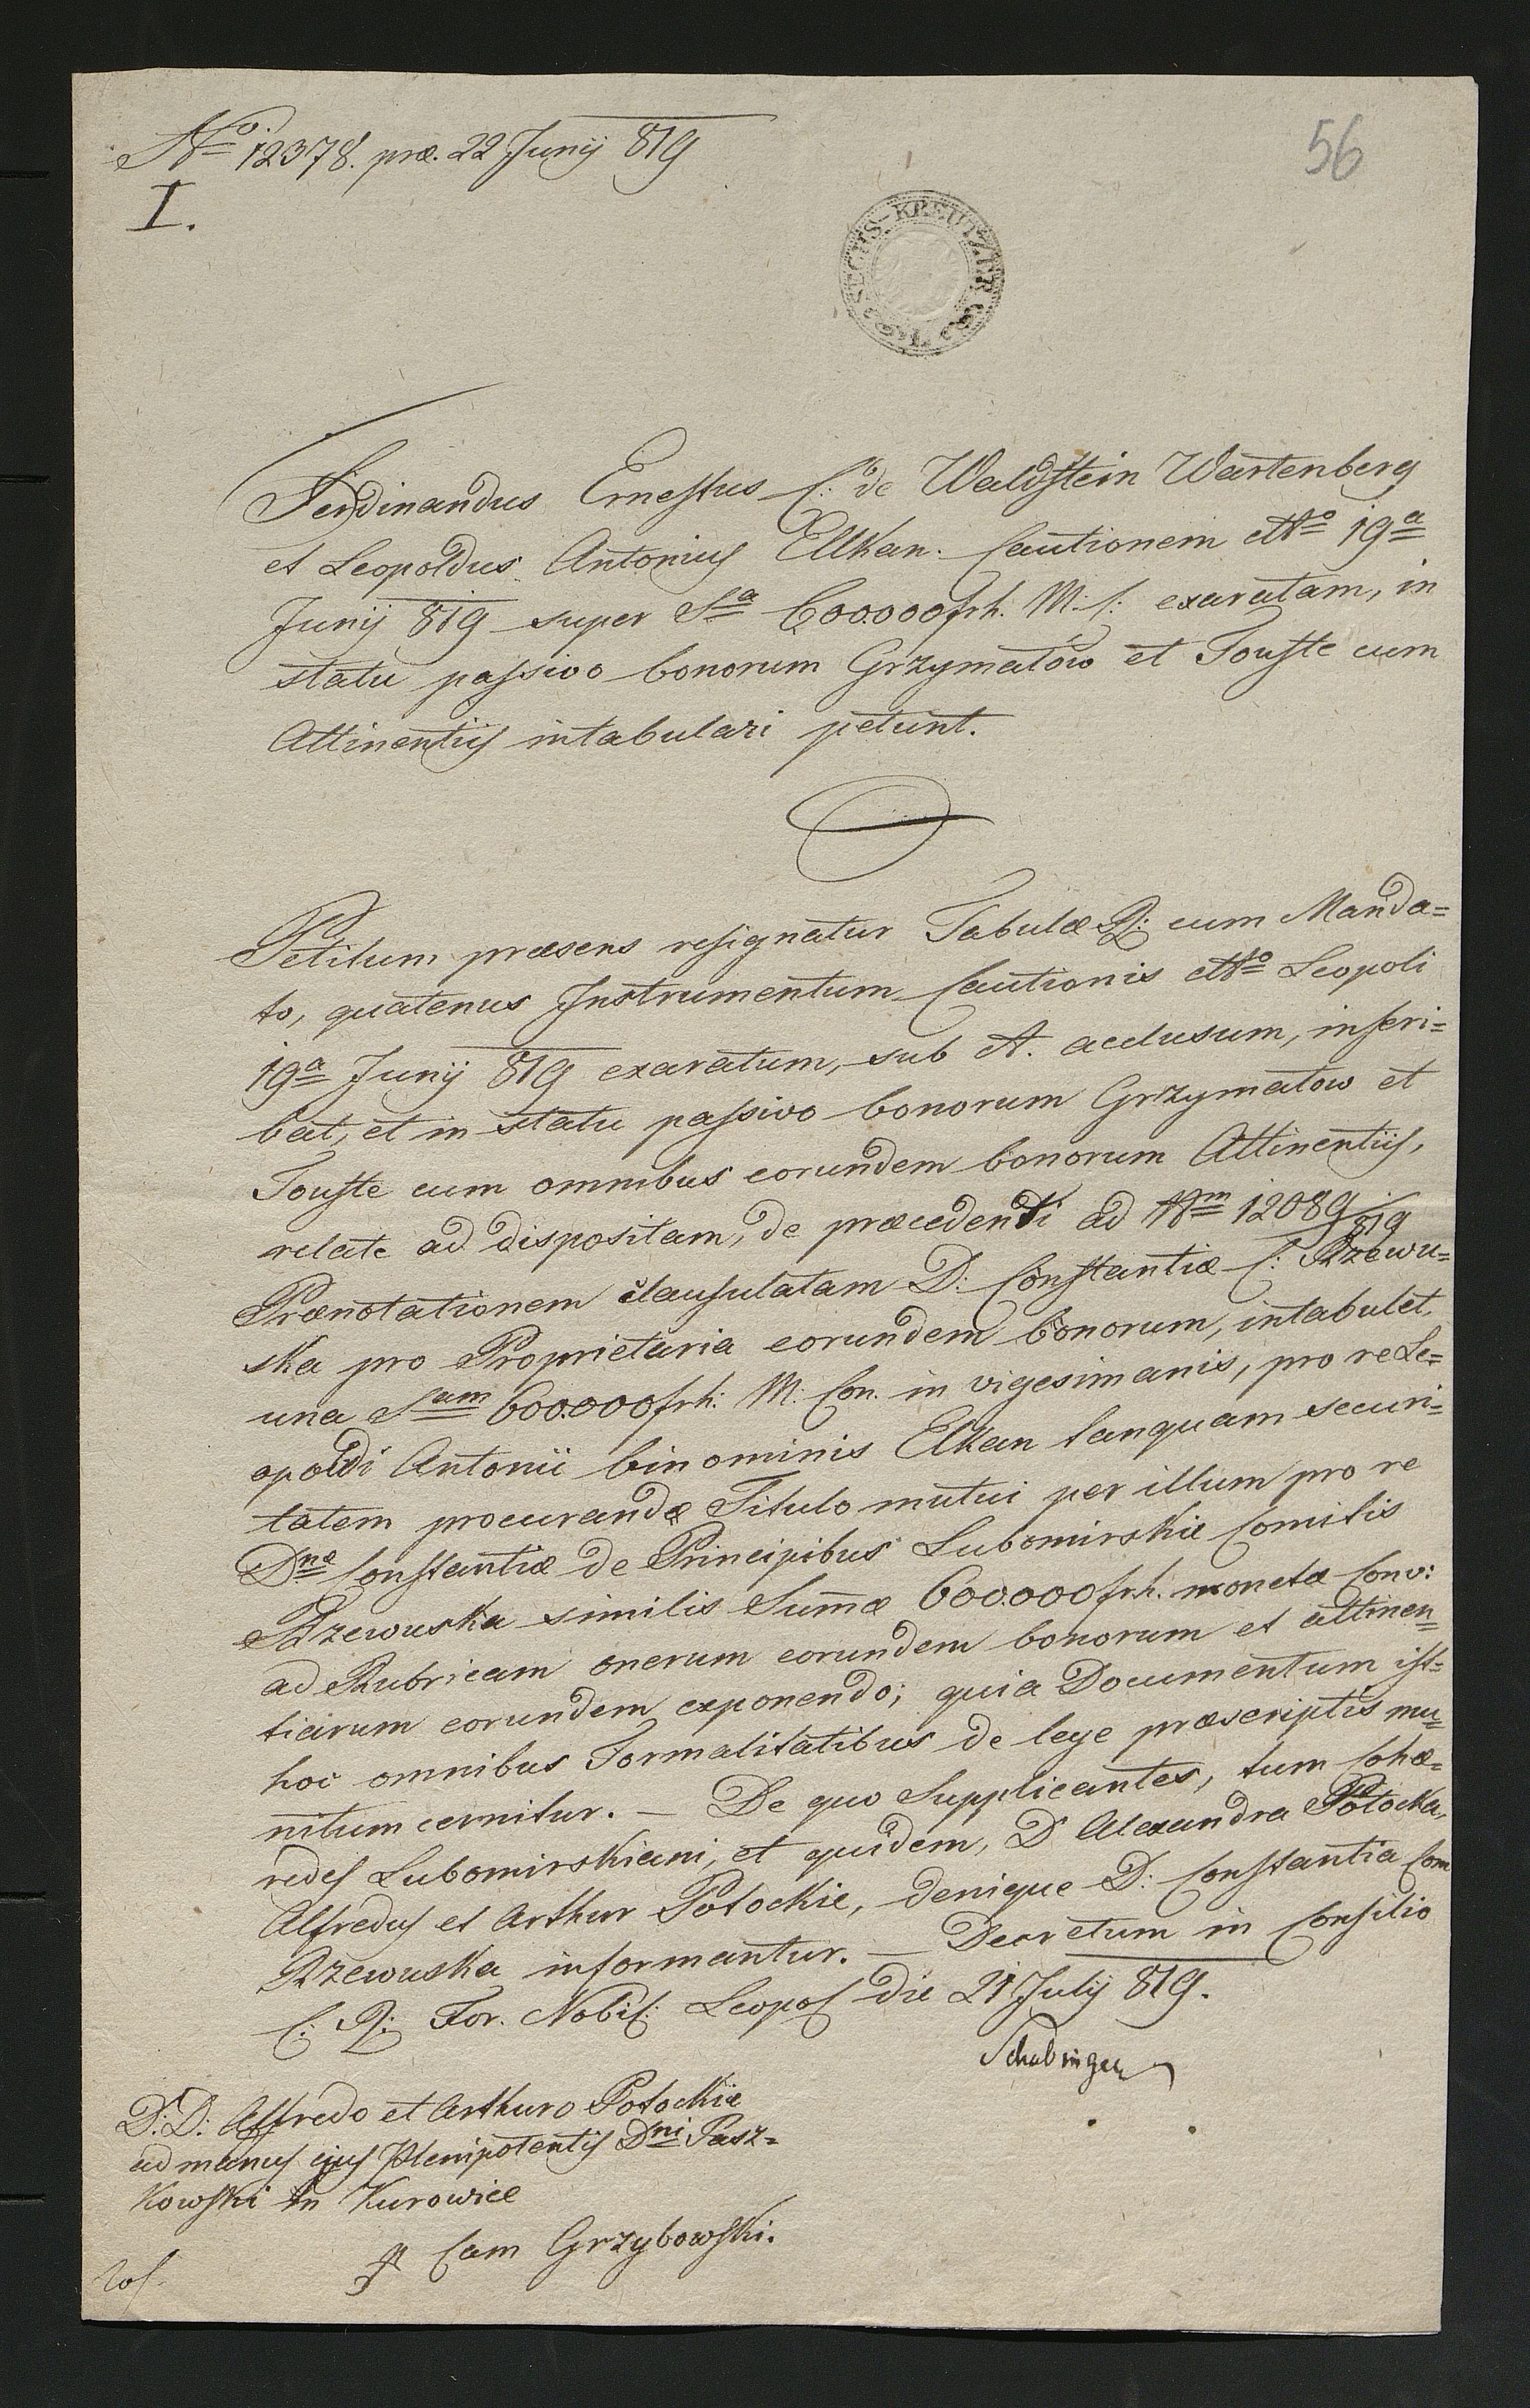 No 12378. præ. 22 Junij 819
56
I.
SECHS-KREUTZER
Ferdinandus Ernestus C: de Waldstein Wartenberg
et Leopoldus Antonius Elkan. Cautionem ddto 19a
Junij 819 super Sa 600.000 frh. M: C: exaratam, in
statu passivo bonorum Grzymałów et Touste cum
Attinentiis intabulari petunt.
Petitum præsens resignatur Tabulæ R: cum Manda=
to, quatenus Instrumentum Cautionis ddto Leopoli
19a Junij 819 exaratum, sub A. acclusum, inseri=
bat, et in statu passivo bonorum Grzymałow et
Touste cum omnibus eorundem bonorum Attinentiis,
relate ad dispositam, de præcedenti ad Nm 12089/819
Prænotationem clausulatam D: Constantiæ C: Rzewu=
ska pro Proprietaria eorundem bonorum, intabulet,
una Sam 600.000 frh: M: Con. in vigesimanis, pro re Le=
opoldi Antonii binominis Elkan tanquam securi=
tatem procurandæ Titulo mutui per illum pro re
Dnæ Constantiæ de Principibus Lubomirskie Comitis
Rzewuska similis Sum̄æ 600.000 frh. monetæ Conv:
ad Rubricam onerum eorundem bonorum et attinen=
tiarum eorundem exponendo; quia Documentum ist=
hoc omnibus Formalitatibus de lege præscriptis mu=
nitum cernitur. — De quo Supplicantes, tum Cohæ=
redes Lubomirskiani, et quidem, D Alexandra Potocka,
Alfredus et Arthur Potockie, denique D: Constantia Com
Rzewuska informantur. — Decretum in Consilio
C: R: For. Nobil: Leopol die 21 Julij 819.
D: D: Alfredo et Arthuro Potockie
ad manus ejus Plenipotentis Dni Pasz=
kowski in Kurowice
Cam Grzybowski.